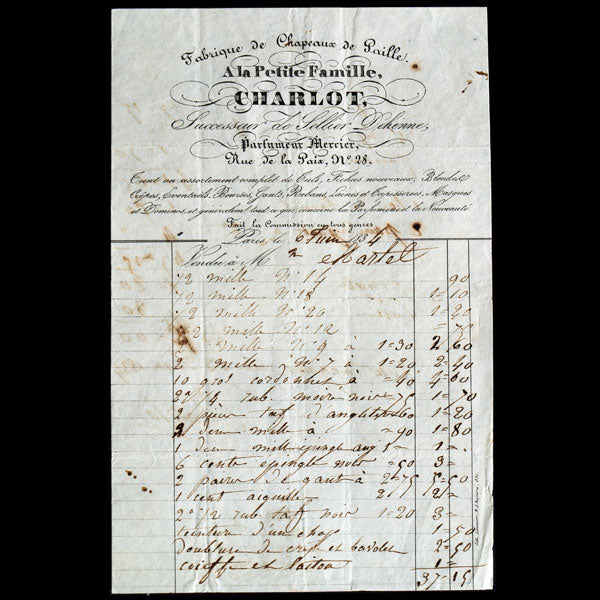 Fabrique de Chapeaux de Paille
A la Petite Famille,
CHARLOT,
Successeur de Sellier Dehenne,
Parfumeur Mercier,
Rue de la Paix, No. 28.
Tient un assortiment complet de Tuls, Fichus nouveaux, Blondes
Crêpes, Eventails, Bourses, Gants, Rubans, Laines et Tapisseries, Masques
et Dominos, et généralemt. tout ce qui concerne la Parfumerie et la Nouveauté
Fait la Commission en tous genres
Paris, le 6 Juin 1834
Vendu à M Martel
1/2 mille No 14 90
1/2 mille No 18 1=10
1/2 mille No 20 1=20
1/2 mille No 12 =70
2 mille No 9 à 1=30 2 60
2 mille No 7 à 1=20 2=40
10 gros cordonnet à =40 4=00
2 1/4 rub. moire noir =75 1=70
2 pièces taf d'angleterre 60 1=20
2 demi mille à =90 1=80
1 demi mille épingle ang 1=
6 cents épingle noir =50 3=
2 paires de gant à 2=75 5=50
1 cent aiguille 2=
2 1/2 rub taf noir 1=20 3=
teinture d'un chap 1=50
doublure de crêpe et bavolet 2=50
coiffe et laiton 1=
37=15